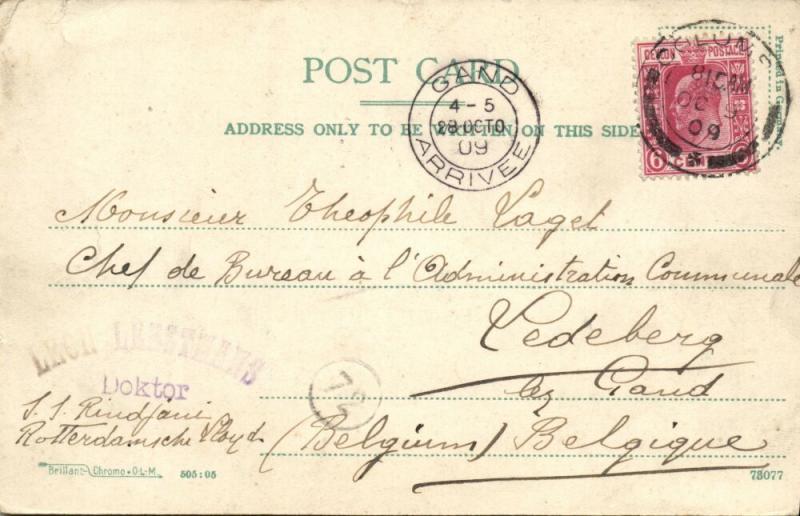 POST CARD
ADDRESS ONLY TO BE WRITTEN ON THIS SIDE
Printed in Germany
GAND
4-5
28 OCTO
09
ARRIVEE
CEYLON POSTAGE
6 CENTS 6
OC 9
09
Monsieur Theophile Laget
Chef de Bureau à l'Administration Communale
Ledeberg
lez Gand
(Belgium) Belgique
Doktor
S. S. Rindjani
Rotterdamsche Lloyd
72
Brillant-Chromo•O-L-M.
505:05
73077